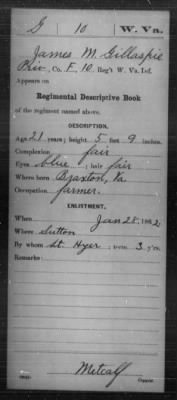 G 10 W. Va.
James M. Gillaspie
Co. F, 10 Reg't W. Va. Inf.
Appears on
Regimental Descriptive Book
of the regiment named above.
DESCRIPTION.
Age 21 years; height 5 feet 9 inches.
Complexion fair
Eyes blue; hair fair
Where born Braxton, Va
Occupation farmer.
ENLISTMENT.
When Jan 28, 1862.
Where Sutton
By whom Lt. Hyer; term 3 y'rs.
Remarks:
Metcalf
Copyist.